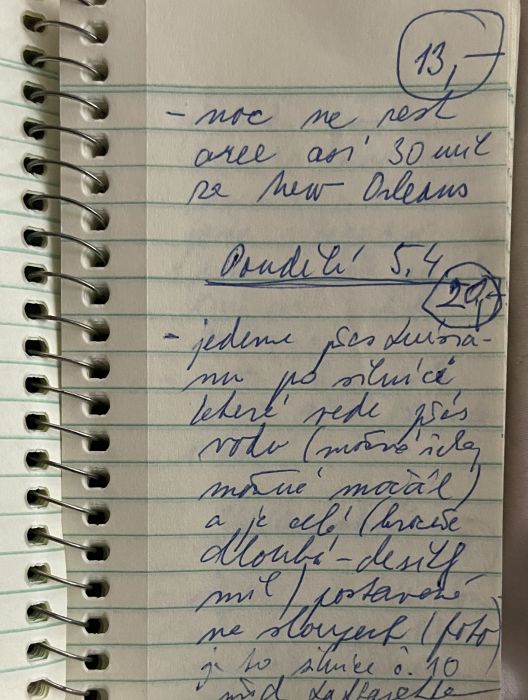 13,-
- noc na rest
aree asi 30 mil
za New Orleans
Pondělí 5.4
20,-
- jedeme přes Luisia-
nu po silnici
která vede přes
vodu (možná
možná močál)
a je celá (hrozně
dlouhá - desítky
mil) postavená
na sloupech (foto)
je to silnice č. 10
před Lafayette